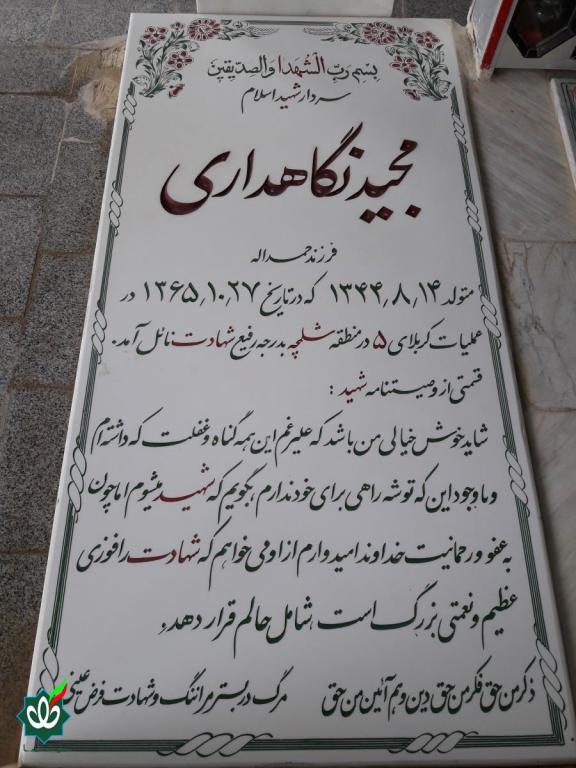 بسم رب الشهدا والصدیقین
سردار شهید اسلام
مجید نگاهداری
فرزند حمداله
متولد ۱۳۴۴٫۸٫۱۴ که در تاریخ ۱۳۶۵٫۱۰٫۲۷ در
عملیات کربلای ۵ در منطقه شلمچه بدرجه رفیع شهادت نائل آمد.
قسمتی از وصیتنامه شهید :
شاید خوش خیالی من باشد که علیرغم این همه گناه و غفلت که داشته‌ام
و ما وجود این که توشه راهی برای خود ندارم بگویم که شهید میشوم اما چون
به عفو و رحمانیت خداوند امیدوارم از او می خواهم که شهادت را فوزی
عظیم و نعمتی بزرگ است شامل حالم قرار دهد.
ذکر من حق فکر من حق دین و هم آئین من حق مرگ در بستر مرا ننگ و شهادت فرض عینی